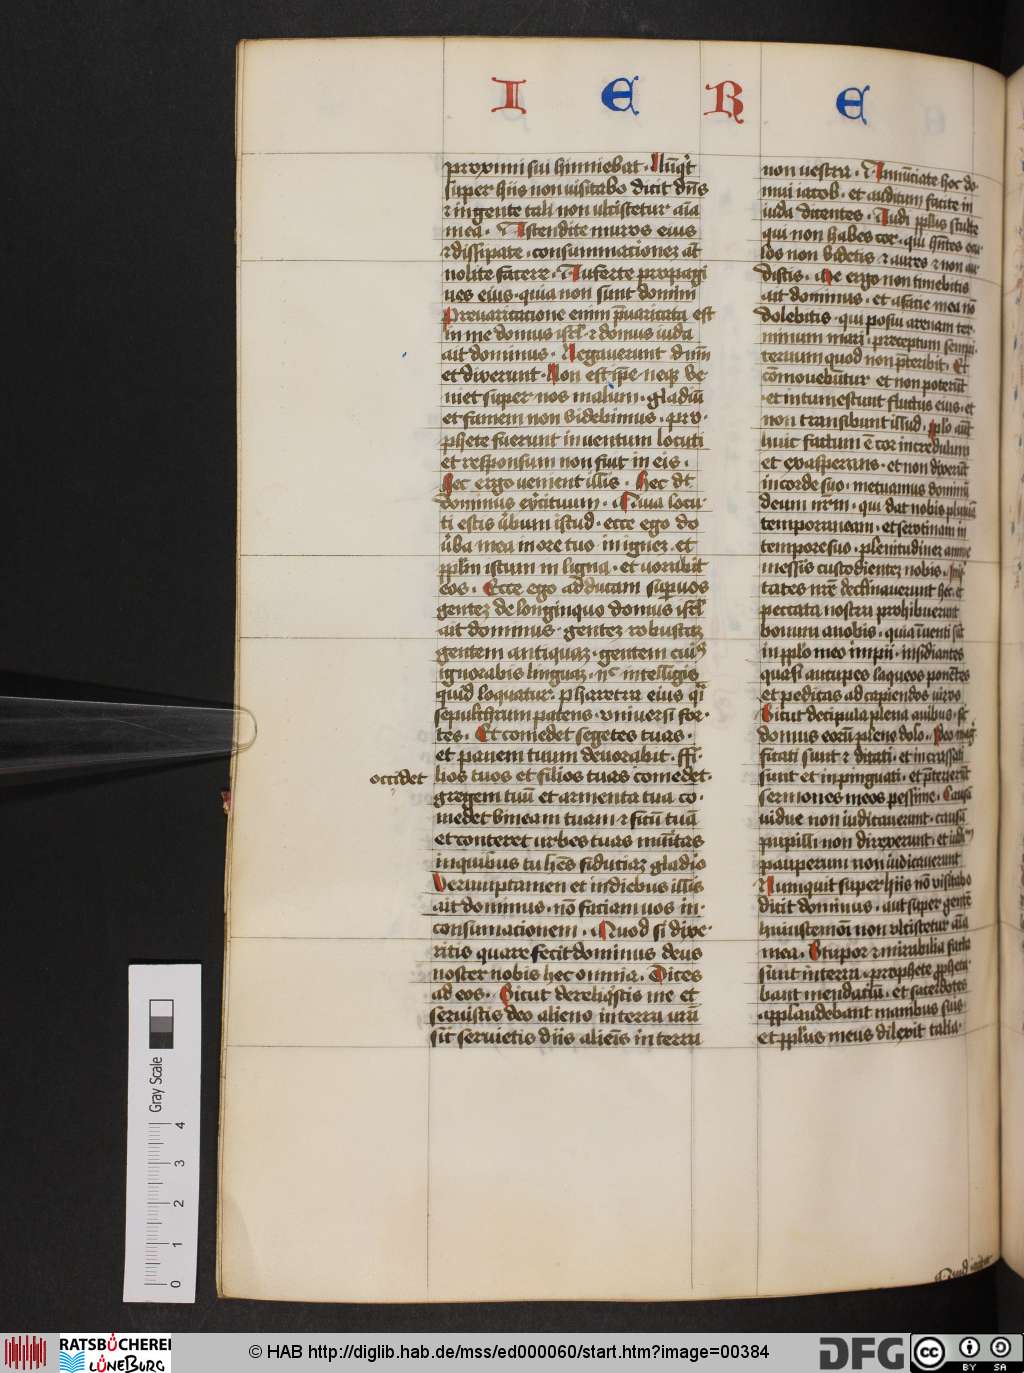 I E R E
proximi sui hinniebat. Nūqͥt
super hiis non uisitabo dicit dn̄s
ꝛ in gente tali non ulcisꞇetur aīa
mea. Ascendite muros eius
ꝛ dissipate. consummacionez aūt
nolite facere. Auferte propagi
nes eius. quia non sunt domini
Preuaricatione enim p̄uaricata est
in me domus isrl̄. ꝛ domus iuda
ait dominus. Negauerunt dn̄m
et dixerunt. Non est ip̄e. neqꝫ ve
niet super nos malum. gladiū
et famem non videbimus. pro.
phete fuerunt in uentum locuti
et responsum non fuit in eis.
Hec ergo uenient illis. Hec dt̄
dominus ex̄cituum. Quia locu
ti estis v̄bum istud. ecce ego do
v̄ba mea in ore tuo in ignez. et
ppl̄m istum in ligna. et uorabit
eos. Ecce ego adducam sup uos
gentez de longinquo domus isrl̄
ait dominus. gentez robustaz
gentem antiquaz. gentem cuiꝰ
ignorabis linguaz. nc̄ intelligis
quid loquatur. pharetra eius qͣi
sepulchrum patens. vniuersi for.
tes. Et comedet segetes tuas.
et panem tuum deuorabit. ffi.
lios tuos et filios tuas comedet.
occidet
gregem tuū et armenta tua co.
medet vineam tuam ꝛ ficū tuā
et conteret urbes tuas mūitas
in quibus tu hēs fiduciaz gladio
Verumptamen et in diebus illis
ait dominus. nō faciam uos in.
consumacionem. Quod si dixe.
ritis quare fecit dominus deus
noster nobis hec omnia. Dices
ad eos. Sicut dereliqͥstis me et
seruistis deo alieno in terra urā
sic seruietis diis alieīs in terra
non uestra. Annūciate hoc do.
mui iacob. et auditum facite in
iuda dicentes. Audi pplus stulte
qui non habes cor. qui hn̄tes ocu
los non videtis ꝛ aures ꝛ non au
ditis. Me ergo non timebitis
ait dominus. et a facie mea nō
dolebitis. qui posui arenam ter.
minum mari. preceptum sempi.
ternum quod non p̄teribit. Et
cōmouebūtur et non poterūt
et intumescunt fluctus eius. et
non transibunt illud. pplo aūt
huic factum ē cor incredulum
et exasperans. et non dixerūt
in corde suo. metuamus dominū
deum nr̄m. qui dat nobis pluuiā
temporaneam. et serotinam in
tempore suo. plenitudinez annue
messis custodientez nobis. Iniqͥ
tates nr̄e declinauerunt hec. et
peccata nostra prohibuerunt
bonum a nobis. quia īuenti sūt
in pplo meo impii. insidiantes
quasi aucupes laqueos ponētes
et pedicas ad capiendos uiros
Sicut decipula plena auibus. sic
domus eorū plene dolo. Ideo mag͛
ficati sunt ꝛ ditati. et incrassati
sunt et inpinguati. et p̄terierūt
sermones meos pessime. Causā
uidue non iudicauerunt. causā
pupilli non direxerunt. et iudiᵐ
pauperum non iudicauerunt
Numquit super hiis nō visitabo
dicit dominus. aut super gentē
huiuscemōi non vlcisꞇetur aīa
mea. Stupor ꝛ mirabilia facta
sunt in terra. prophete ppheta.
bant mendaciū. et sacerdotes
applaudebant manibus suis.
et pplus meus dilexit talia.
Quid igitur
Gray Scale
0 1 2 3 4
RATSBÜCHEREI
LÜNEBURG
© HAB http://diglib.hab.de/mss/ed000060/start.htm?image=00384
DFG
cc BY SA